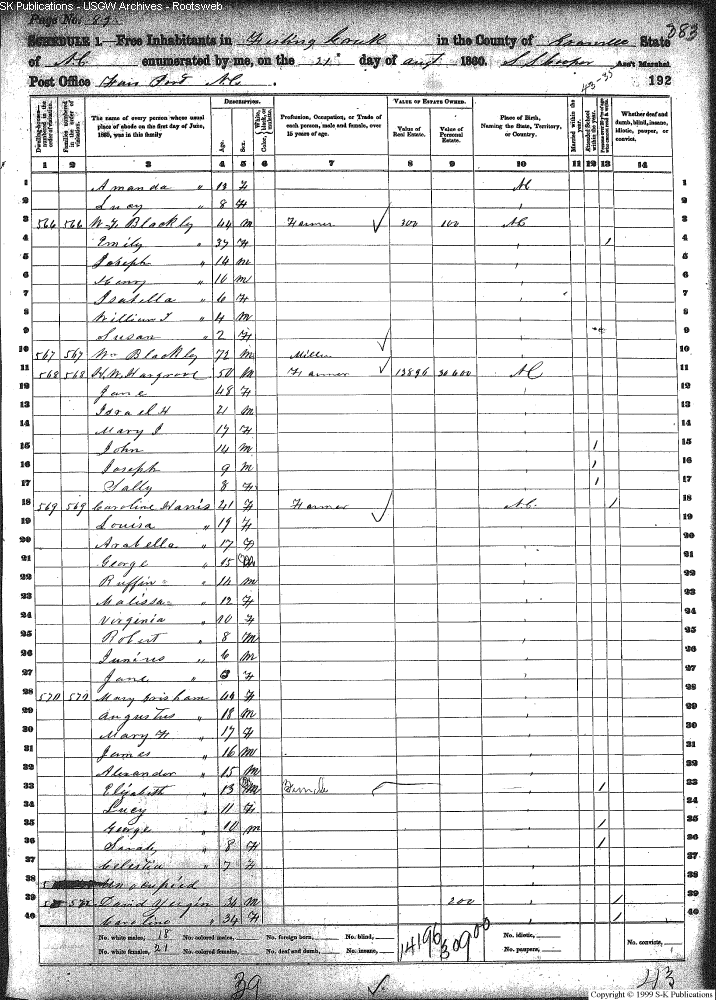 SK Publications - USGW Archives - Rootsweb
Page No. 82
383
SCHEDULE 1.—Free Inhabitants in Fishing Creek in the County of Granville State
of NC enumerated by me, on the 21st day of Augt 1860. Ass't Marshal
Post Office NC. 192
43-35
DESCRIPTION. VALUE OF ESTATE OWNED.
Dwelling-houses—numbered in the order of visitation. Families numbered in the order of visitation. The name of every person whose usual place of abode on the first day of June, 1860, was in this family Age. Sex. Color, White, black, or mulatto. Profession, Occupation, or Trade of each person, male and female, over 15 years of age. Value of Real Estate. Value of Personal Estate. Place of Birth, Naming the State, Territory, or Country. Married within the year. Attended School within the year. Whether deaf and dumb, blind, insane, idiotic, pauper, or convict.
1 2 3 4 5 6 7 8 9 10 11 12 13 14
1 Amanda " 13 F NC 1
2 Lucy " 8 F 2
3 566 566 W. F. Blackly 44 M Farmer ✓ 300 100 NC 3
4 Emily " 37 F / 4
5 Joseph " 14 M 5
6 Henry " 10 M 6
7 Isabella " 6 F 7
8 William T " 4 M 8
9 Susan " 2 F 9
10 567 567 Wm Blackly 72 M Miller ✓ 10
11 568 568 H. W. Hargrove 50 M Farmer ✓ 13896 30600 NC 11
12 Jane 48 F 12
13 Israel H 21 M 13
14 Mary J 17 F 14
15 John 14 M / 15
16 Joseph 9 M / 16
17 Sally 8 F / 17
18 569 569 Caroline Harris 41 F Farmer ✓ N.C. / 18
19 Louisa " 19 F 19
20 Arabella " 17 F 20
21 George " 15 21
22 Ruffin " 14 M 22
23 Malissa " 12 F 23
24 Virginia " 10 F 24
25 Robert " 8 M 25
26 Junius " 6 M 26
27 Jane " 3 F 27
28 570 570 Mary Grisham 44 F 28
29 Augustus " 18 M 29
30 Mary F " 17 F 30
31 James " 16 M 31
32 Alexander " 15 M 32
33 Elizabeth " 13 Female / 33
34 Lucy " 11 F 34
35 George " 10 M / 35
36 Sarah " 8 F / 36
37 Celestia " 7 F 37
38 Unoccupied 38
39 David 36 M 200 / 39
40 Caroline " 34 F / 40
No. white males, 18 No. colored males, No. foreign born, No. blind, 14196 30900 No. idiotic, No. convicts,
No. white females, 21 No. colored females, No. deaf and dumb, No. insane, No. paupers,
39 ✓.
Copyright © 1999 S-K Publications